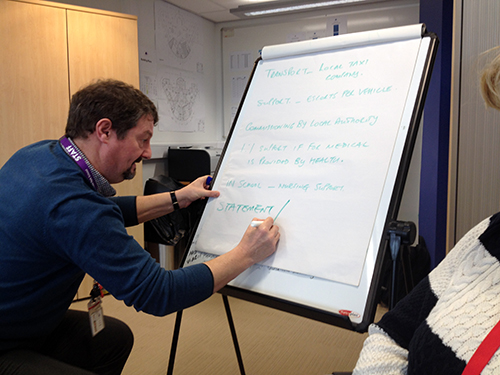 TRANSPORT - LOCAL TAXI
COMPANY.
SUPPORT - ESCORTS PER VEHICLE.
COMMISSIONING BY LOCAL AUTHORITY
SUPPORT IF FOR MEDICAL
IS PROVIDED BY HEALTH.
IN SCHOOL - MEETING SUPPORT
STATEMENT /
STAFF